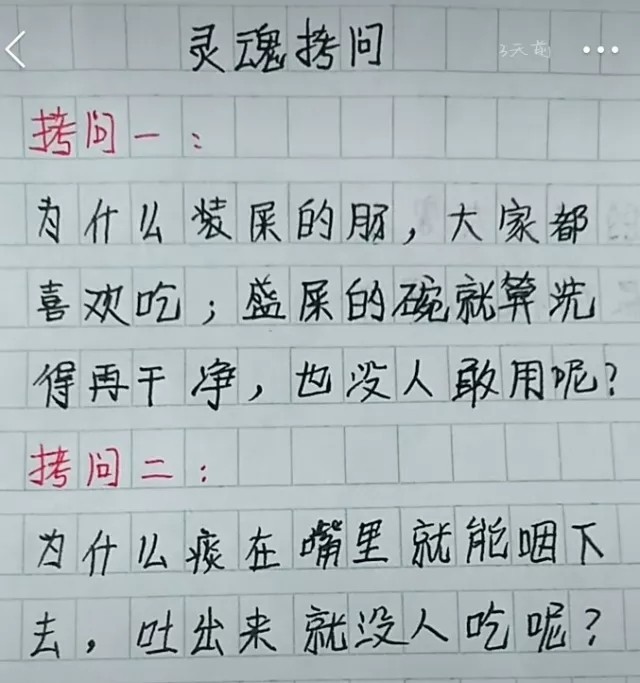 灵魂拷问
3天前
拷问一：
为什么装屎的肠，大家都
喜欢吃；盛屎的碗就算洗
得再干净，也没人敢用呢？
拷问二：
为什么痰在嘴里就能咽下
去，吐出来就没人吃呢？